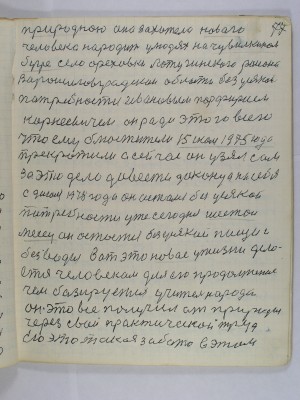 77
природною она захотела новаго
человека народит у людях на чувилкином
бугре село ореховка Лотугинского района
Варошиловградской области без усякой
патребности ивановым парфирием
карнеевичем он ради этого всего
что ему обмоститили 15 июля 1975 года
прекротили а сейчас он узял сам
за это дело довести до конца на себя
с 1978 года он остался без усякой
патребности уже сегодня шестой
месец он остался без усякой пищи и
без воды Вот это новае у жизни дело-
ется человекам для его продолжение
чем базируется учителя народа
он это все получил от природы
через свой практической труд
Его это такая забота в этом